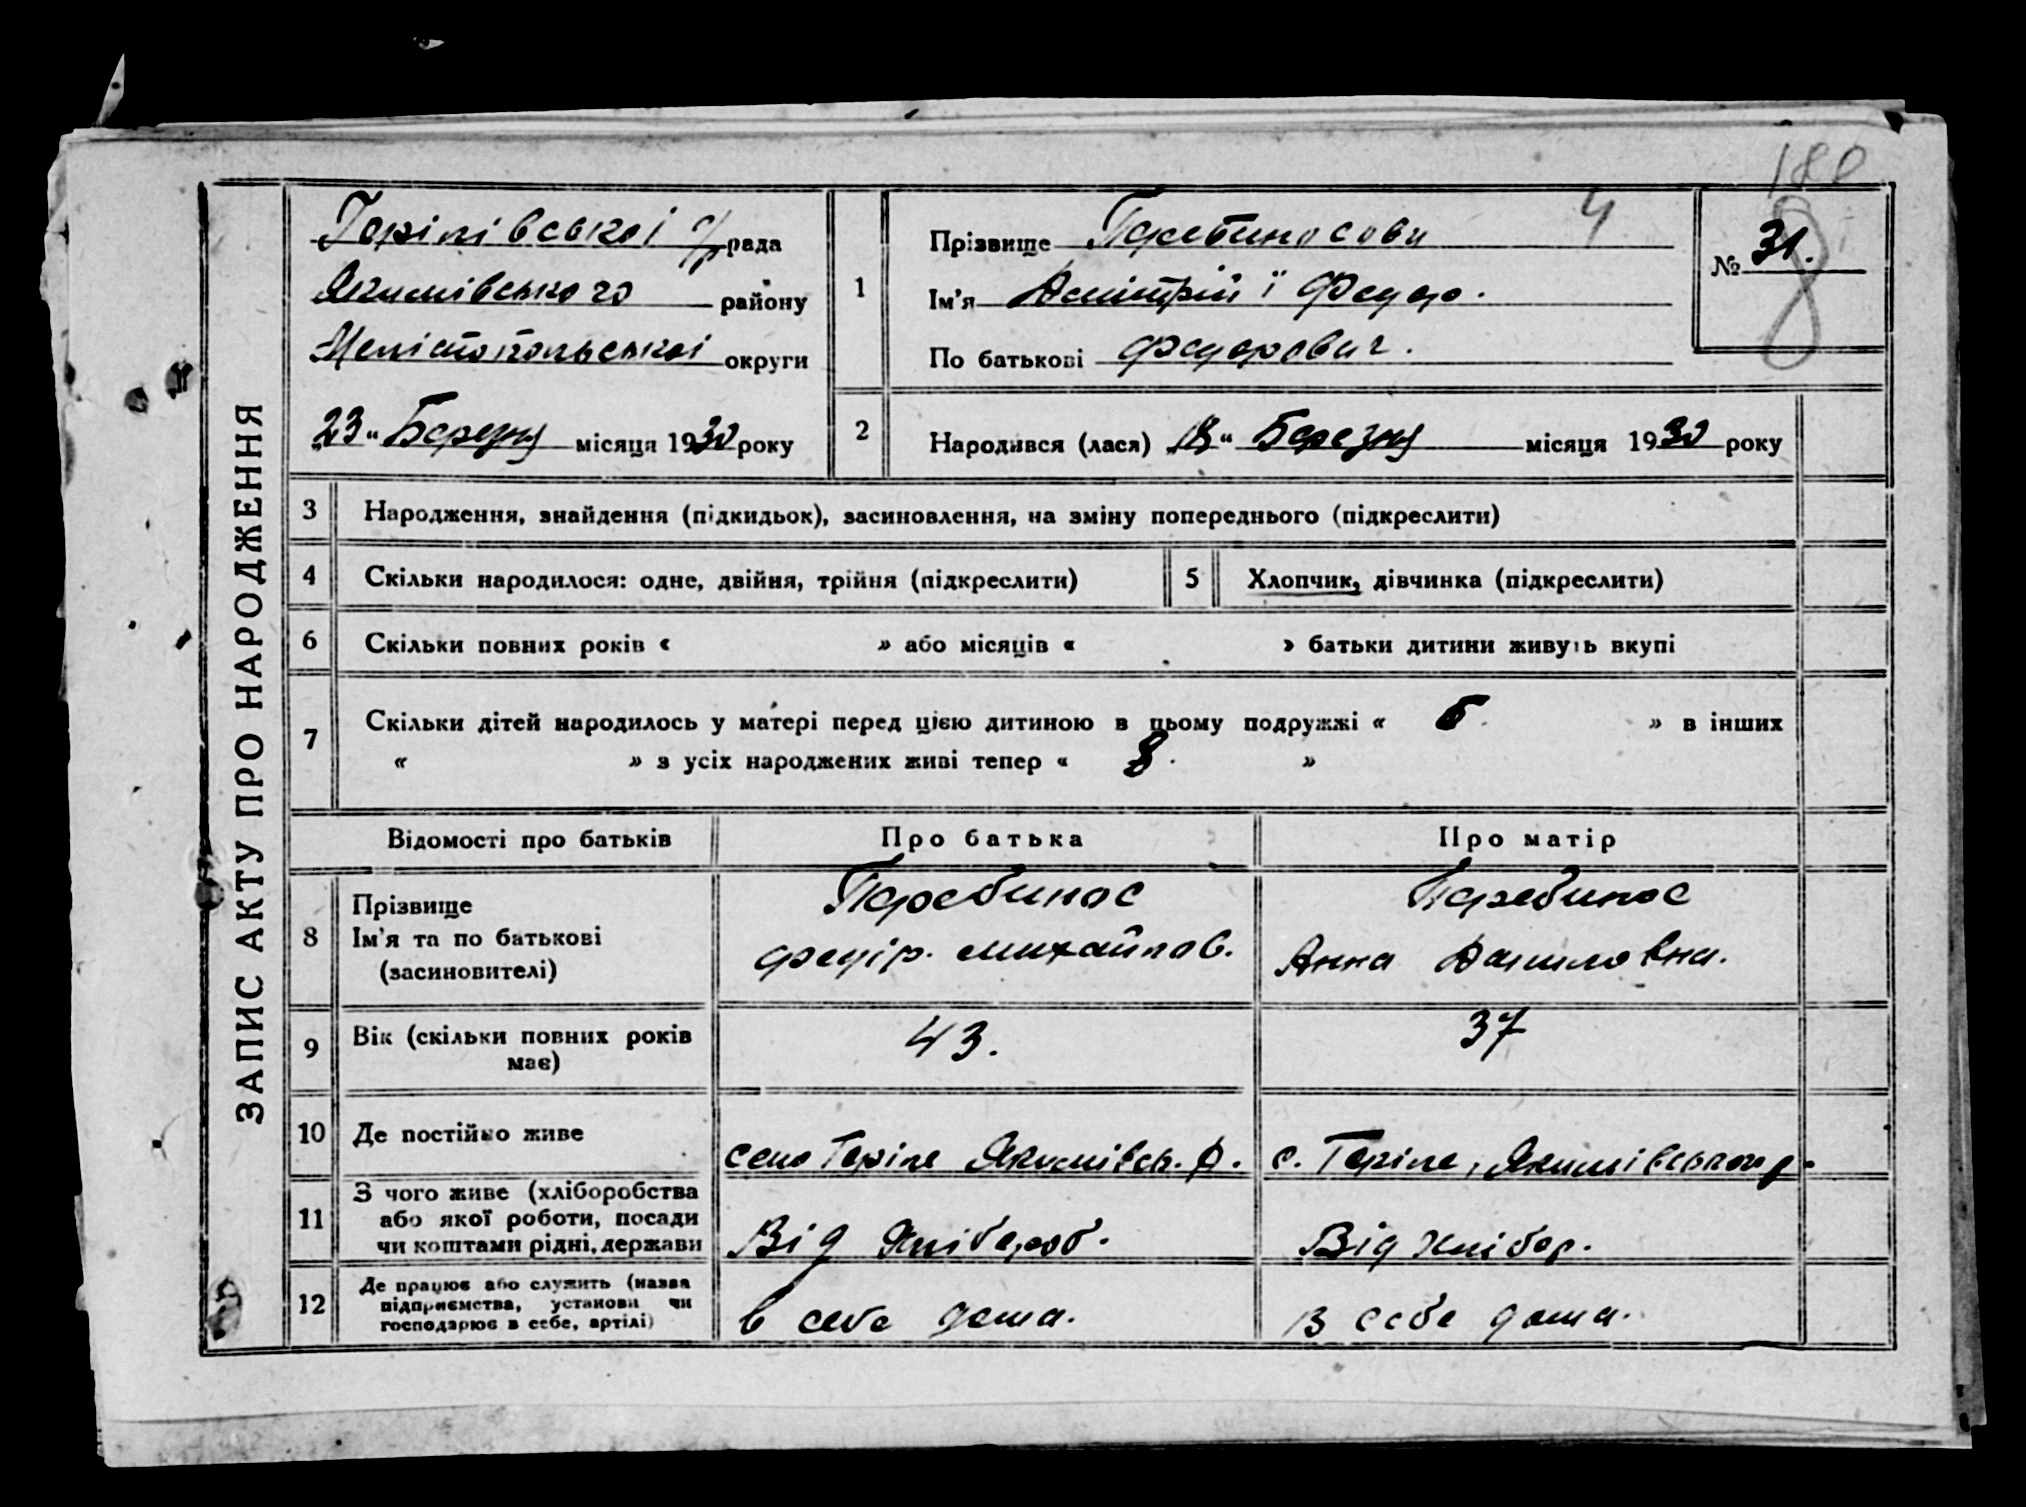 188
ЗАПИС АКТУ ПРО НАРОДЖЕННЯ
Горілівської с/рада
Якимівського району
Мелітопольської округи
„23“ Березня місяця 1930 року
1
Прізвище Перебиносови 4
Ім'я Дмітрій ї Федор.
По батькові Федорович.
№ 31.
8
2
Народився (лася) „18“ Березня місяця 1930 року
3 Народження, знайдення (підкидьок), засиновлення, на зміну попереднього (підкреслити)
4 Скільки народилося: одне, двійня, трійня (підкреслити) 5 Хлопчик, дівчинка (підкреслити)
6 Скільки повних років « » або місяців « » батьки дитини живуть вкупі
7 Скільки дітей народилось у матері перед цією дитиною в цьому подружжі « » в інших
« » з усіх народжених живі тепер « 8. »
Відомості про батьків Про батька Про матір
8 Прізвище
Ім'я та по батькові
(засиновителі)
Перебинос
Федір. Михайлов.
Перебинос
Анна Даниловна.
9 Вік (скільки повних років
має)
43.
37
10 Де постійно живе село Горіле Якимівськ. р. с. Горіле, Якимівського р.
11 З чого живе (хліборобства
або якої роботи, посади
чи коштами рідні, держави
Від хлібороб.
Від хлібор.
12 Де працює або служить (назва
підприємства, установи чи
господарює в себе, артілі)
в себе дома.
В себе дома.